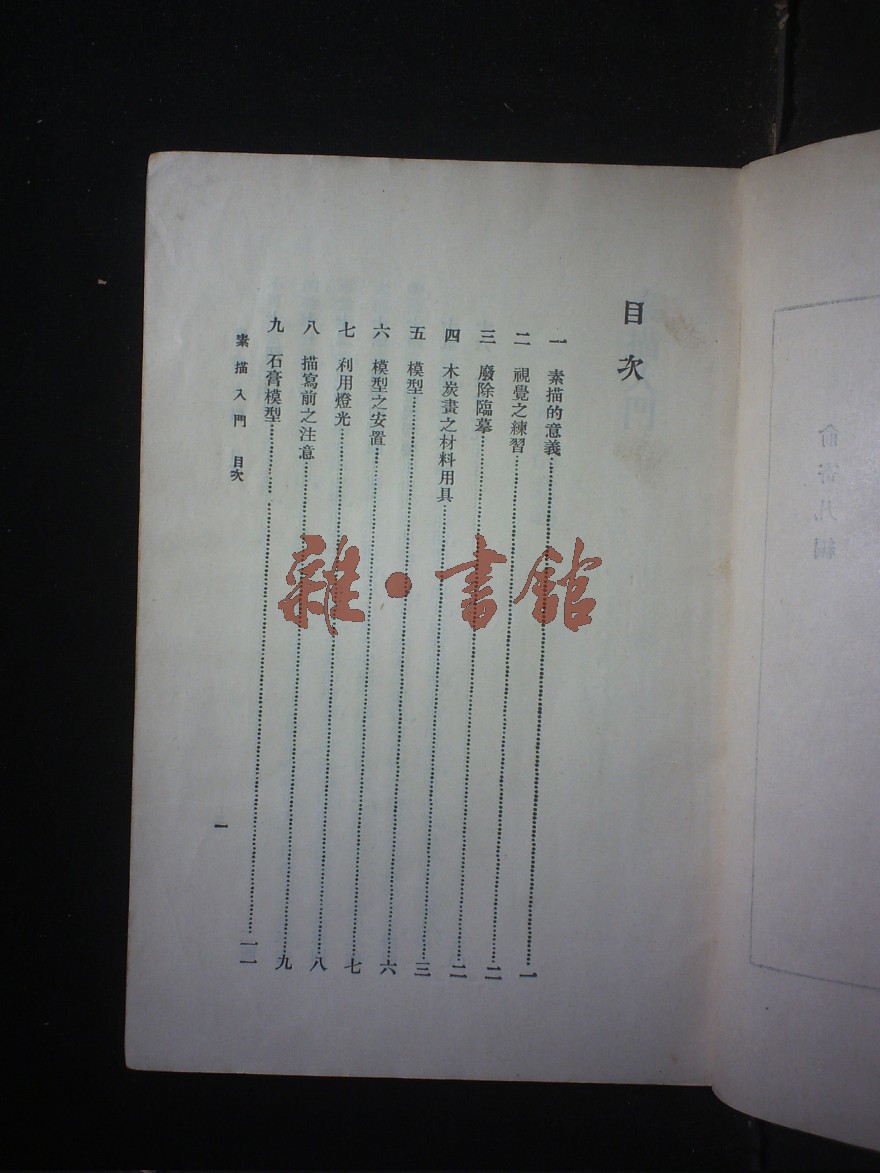 目次
一 素描的意義…………一
二 視覺之練習…………二
三 廢除臨摹…………二
四 木炭畫之材料用具…………二
五 模型…………三
六 模型之安置…………六
七 利用燈光…………七
八 描寫前之注意…………八
九 石膏模型…………九
素描入門 目次
一
雜·書館